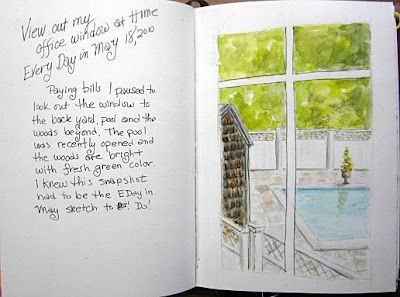 View out my
office window at Home
Every Day in May 18, 2010
Paying bills I paused to
look out the window to
the back yard, pool and the
woods beyond. The pool
was recently opened and
the woods are bright
with fresh green color.
I knew this snapshot
had to be the EDay in
May sketch to Do!